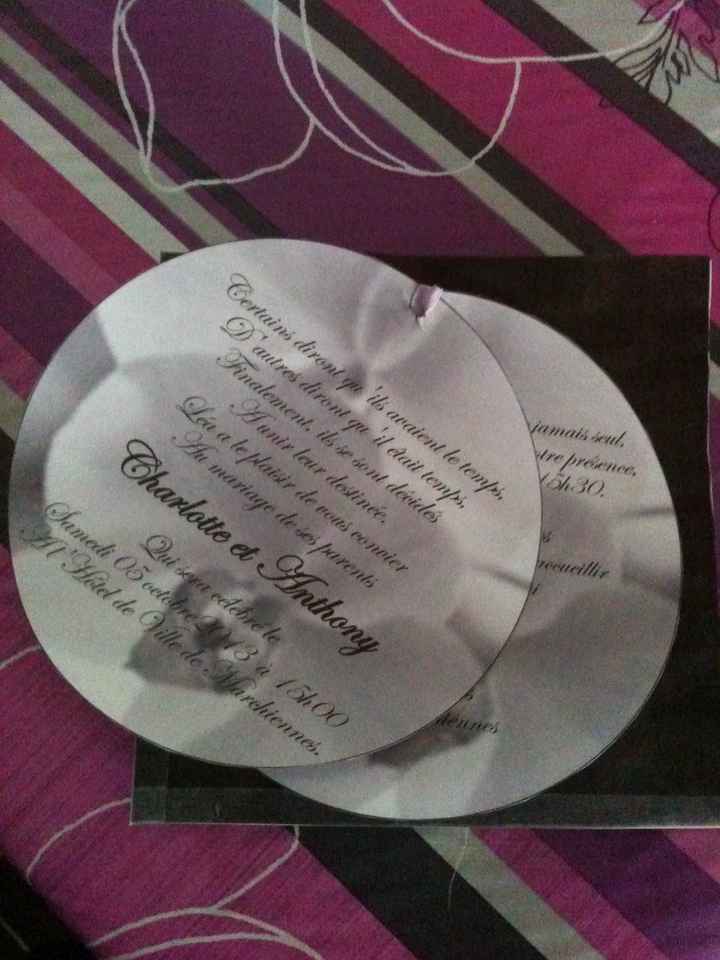 Certains diront qu'ils avaient le temps,
D'autres diront qu'il était temps,
Finalement, ils se sont décidés
A unir leur destinée.
Léa a le plaisir de vous convier
Au mariage de ses parents
Charlotte et Anthony
Qui sera célébré le
Samedi 05 octobre 2013 à 15h00
A l'Hôtel de Ville de Marchiennes.
jamais seul,
otre présence,
15h30.
s
recueillir
i
s
iennes